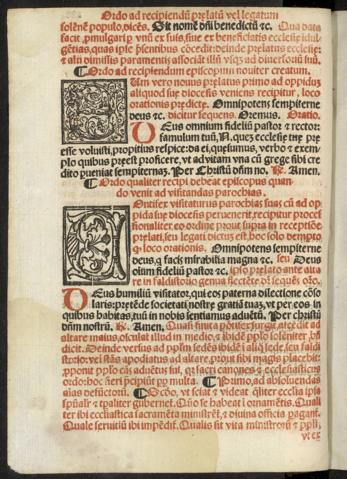 Ordo ad recipiendū prelatū vel legatum
solēnē populo, dicēs. Sit nomē dn̄i benedictū ⁊c. Qua data
facit, pmulgari
gētias, quas ipse p̄sentibus cōcedit: deinde prelatus ecclesie:
⁊ alii dimissis paramentis associāt illū vsq; ad diversoriū suū.
¶ Ordo ad recipiendum episcopum noviter creatum.
Um vero novus prelatus primo ad oppidum
aliquod sue diocesis veniens recipitur, loco
orationis predicte. Omnipotens sempiterne
deus ⁊c. dicitur sequens. Oremus. Oratio.
DEus omnium fideliū pastor ⁊ rector:
famulum tuū, N. quez ecclesie tue pre
esse voluisti, propitius respice: da ei, quesumus, verbo ⁊ exem/
plo quibus preest proficere, vt ad vitam vna cū grege sibi cre
dito pueniat sempiternaz. Per Christū dn̄m no. R. Amen.
¶ Ordo qualiter recipi debeat episcopus quan
do venit ad visitandas parochias.
Ontifex visitaturus parochias suas cū ad op
pida sue diocesis pervenerit, recipitur procef
sionaliter, eo ordine prout supra in receptiōe
prelati, seu legati dictus est, hoc solo dempto
q; loco orationis. Omnipotens sempiterne
deus, q facis mirabilia magna ⁊c. seu Deus
oium fideliū pastor ⁊c. ipso prelato ante alta
re in faldistorio genua flectēte dr̄ sequēs oro.
DEus humiliū visitator, qui eos paterna dilectione cōso
laris: pretēde societati nostre gratiā tuaz, vt per eos in
quibus habitas, tuū in nobis sentiamus aduētū. Per christū
dn̄m nostrū. R. Amen. Quasi finita pōtifex surgit, accedit ad
altare maius, osculat illud in medio, ⁊ ibidē pp̄lo solēniter bn̄
dicit. Deinde versus ad pp̄lm sedēs ibidē ī aliq sede, seu faldi
storio: vel stās apodiatus ad altare, prout sibi magis placebit:
pponit pp̄lo cās aduētus sui, qr sacri canones ⁊ ecclesiasticus
ordo: hoc fieri p̄cipiūt pp multa. ¶ Primo, ad absoluendas
aias defūctorū. ¶ Scdo, vt sciat ⁊ videat qliter ecclia ipsa
spūalr ⁊ tpaliter gubernet. Quō se habeat ī ornamētis. Quali
ter ibi ecclesiastica sacramēta ministrēt, ⁊ divina officia pagant.
Quale seruitiū ibi impēdit. Qualis sit vita ministrorū ⁊ pp̄li,
vt ex